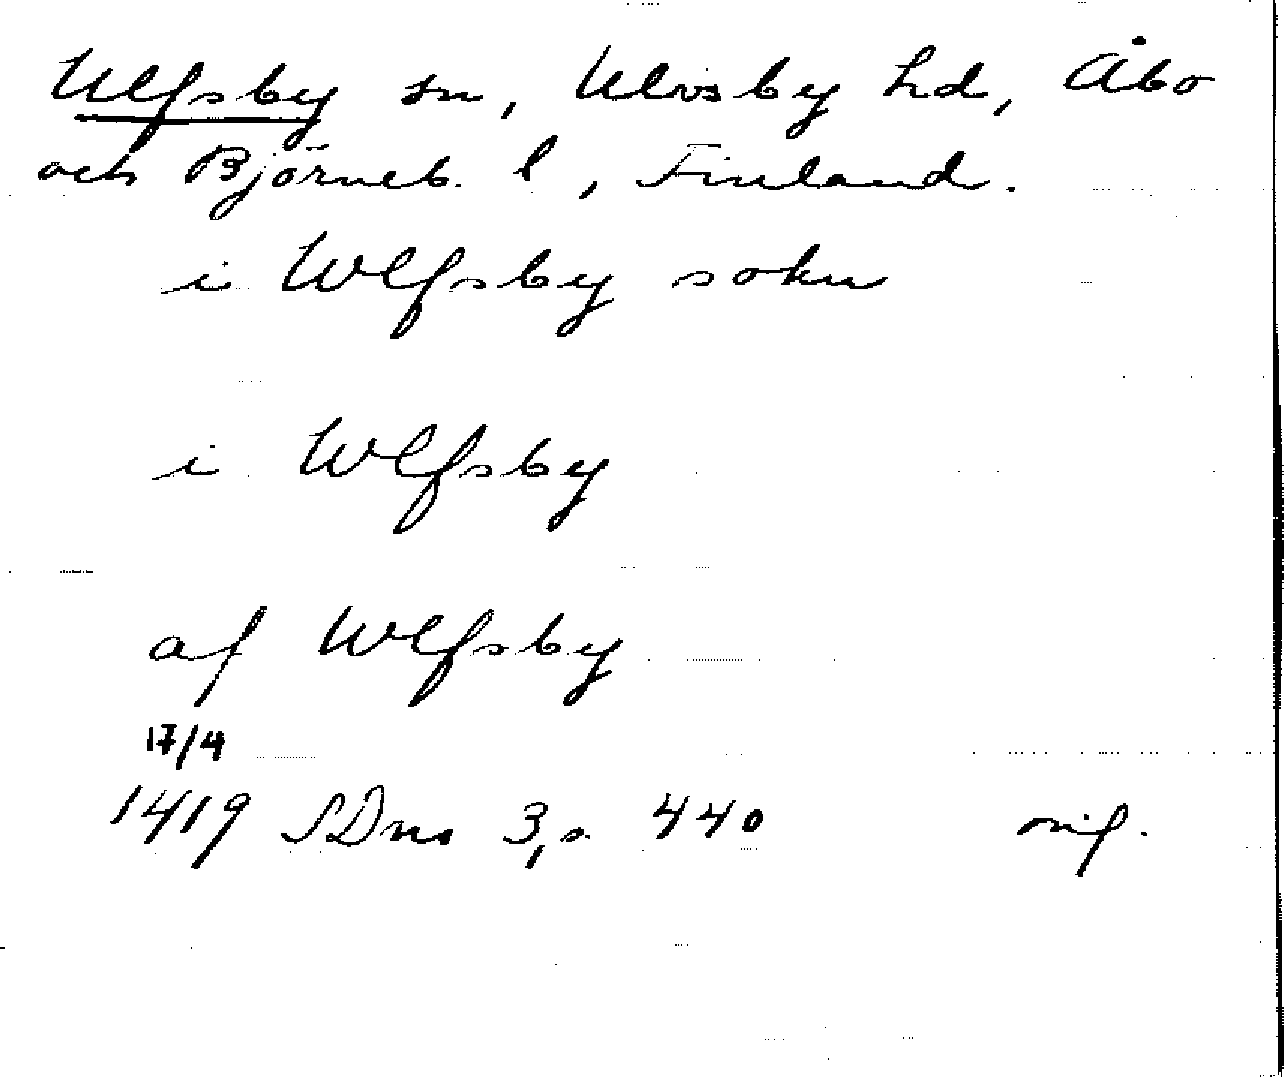 Ulfsby sn, Ulvsby hd, Åbo
och Björneb. l, Finland.
i Wlfsby sokn
i Wlfsby
af Wlfsby
17/4
1419 SDns 3, s. 440 orig.